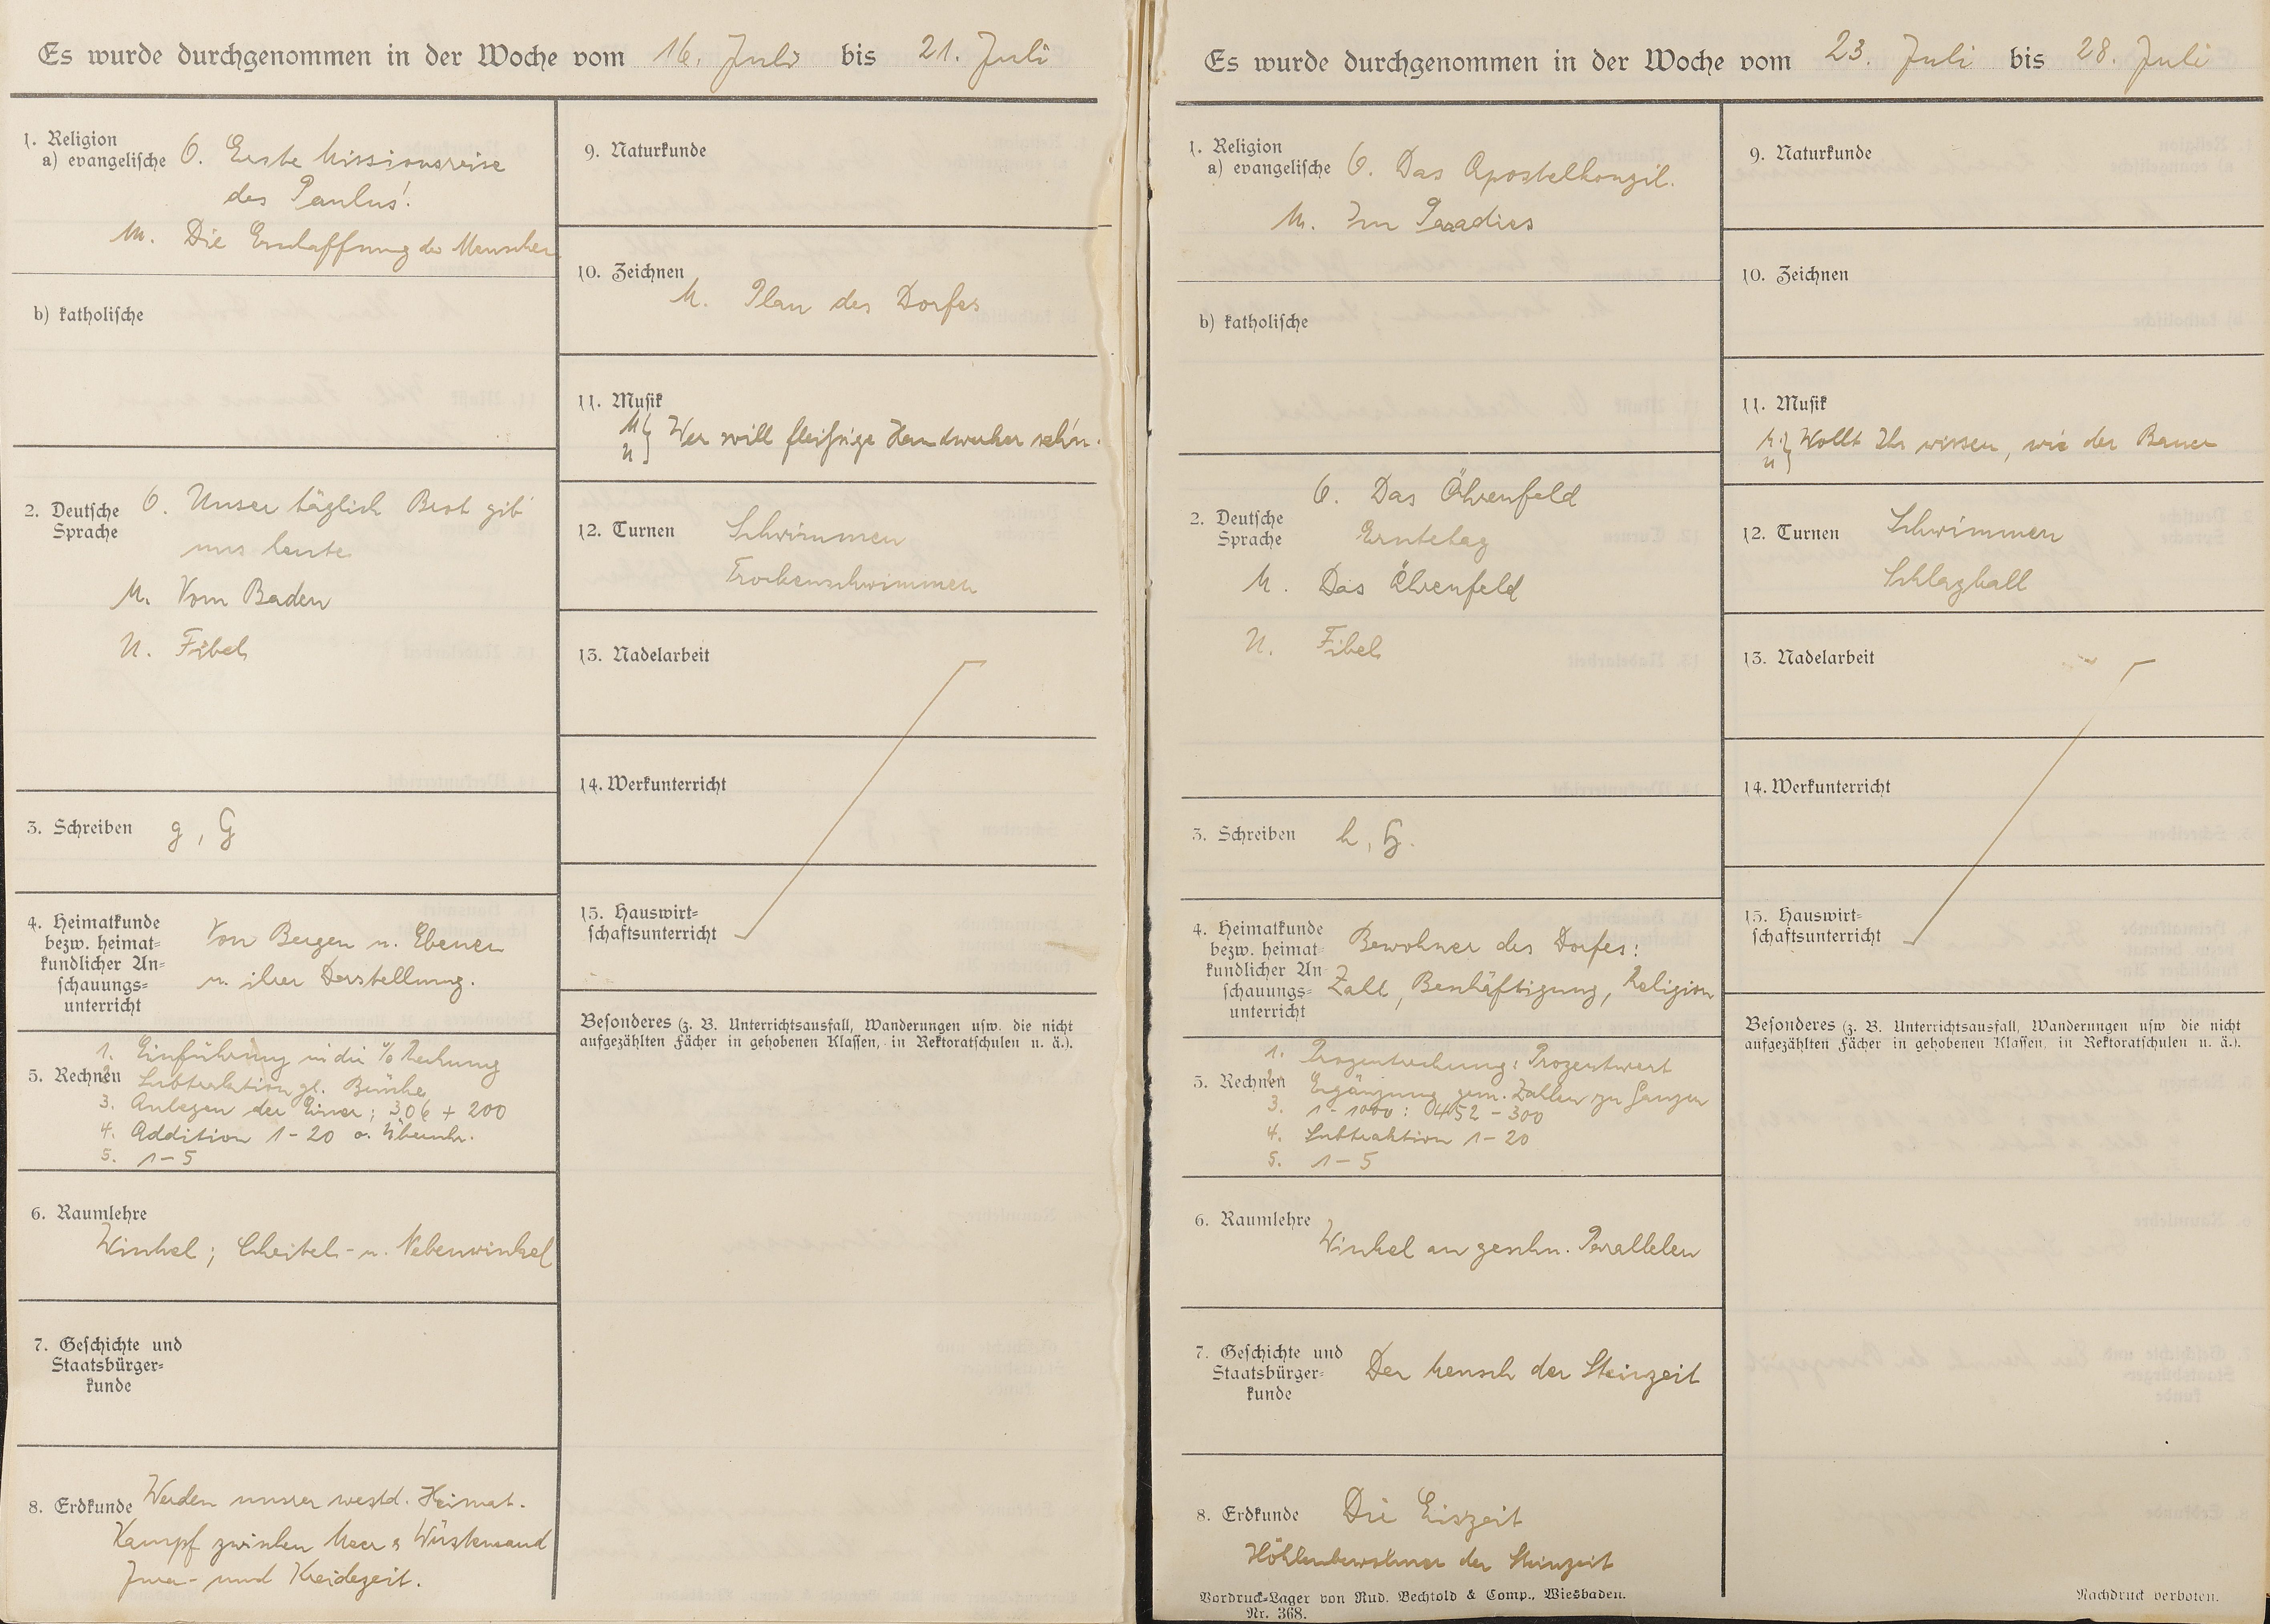 Es wurde durchgenommen in der Woche vom 16. Juli bis 21. Juli
1. Religion
a) evangelische O. Erste Missionsreise
des Paulus!
M. Die Erschaffung der Menschen
b) katholische
2. Deutsche Sprache O. Unser täglich Brot gib
uns heute
M. Vom Baden
U. Fibel
3. Schreiben g, G
4. Heimatkunde
bezw. heimat=
kundlicher An=
schauungs=
unterricht
Von Bergen u. Ebenen
u. ihrer Darstellung.
5. Rechnen
1. Einführung in die % Rechnung
2. Subtraktion gl. Brüche
3. Anlegen der Einer; 306 + 200
4. Addition 1-20 o. Überschr.
5. 1-5
6. Raumlehre
Winkel; Scheitel- u. Nebenwinkel
7. Geschichte und
Staatsbürger=
kunde
8. Erdkunde Werden unsrer westd. Heimat.
Kampf zwischen Meer &
Jura- und Kreidezeit.
9. Naturkunde
10. Zeichnen
M. Plan des Dorfes
11. Musik
M. U. } Wer will fleißige Handwerker seh'n.
12. Turnen Schwimmen
Trockenschwimmen
13. Nadelarbeit
14. Werkunterricht
15. Hauswirt=
schaftsunterricht
Besonderes (z. B. Unterrichtsausfall, Wanderungen usw. die nicht
aufgezählten Fächer in gehobenen Klassen, in Rektoratschulen u. ä.).
Es wurde durchgenommen in der Woche vom 23. Juli bis 28. Juli
1. Religion
a) evangelische O. Das Apostelkonzil.
M. Im Paradies
b) katholische
2. Deutsche
Sprache
O. Das Ährenfeld
Erntetag
M. Das Ährenfeld
U. Fibel
3. Schreiben h, H.
4. Heimatkunde
bezw. heimat=
kundlicher An=
schauungs=
unterricht
Bewohner des Dorfes:
Zahl, Beschäftigung, Religion
5. Rechnen
1. Prozentrechnung: Prozentwert
2. Ergänzung gem. Zahlen zu Ganzen
3. 1-1000: 452 - 300
4. Subtraktion 1-20
5. 1-5
6. Raumlehre
Winkel an geschn. Parallelen
7. Geschichte und
Staatsbürger=
kunde
Der Mensch der Steinzeit
8. Erdkunde Die Eiszeit
Höhlenbewohner der Steinzeit
Vordruck=Lager von Rud. Bechtold & Comp., Wiesbaden.
Nr. 368.
9. Naturkunde
10. Zeichnen
11. Musik
M. U. } Wollt Ihr wissen, wie der Bauer
12. Turnen Schwimmen
Schlagball
13. Nadelarbeit
14. Werkunterricht
15. Hauswirt=
schaftsunterricht
Besonderes (z. B. Unterrichtsausfall, Wanderungen usw die nicht
aufgezählten Fächer in gehobenen Klassen, in Rektoratschulen u. ä.).
Nachdruck verboten.